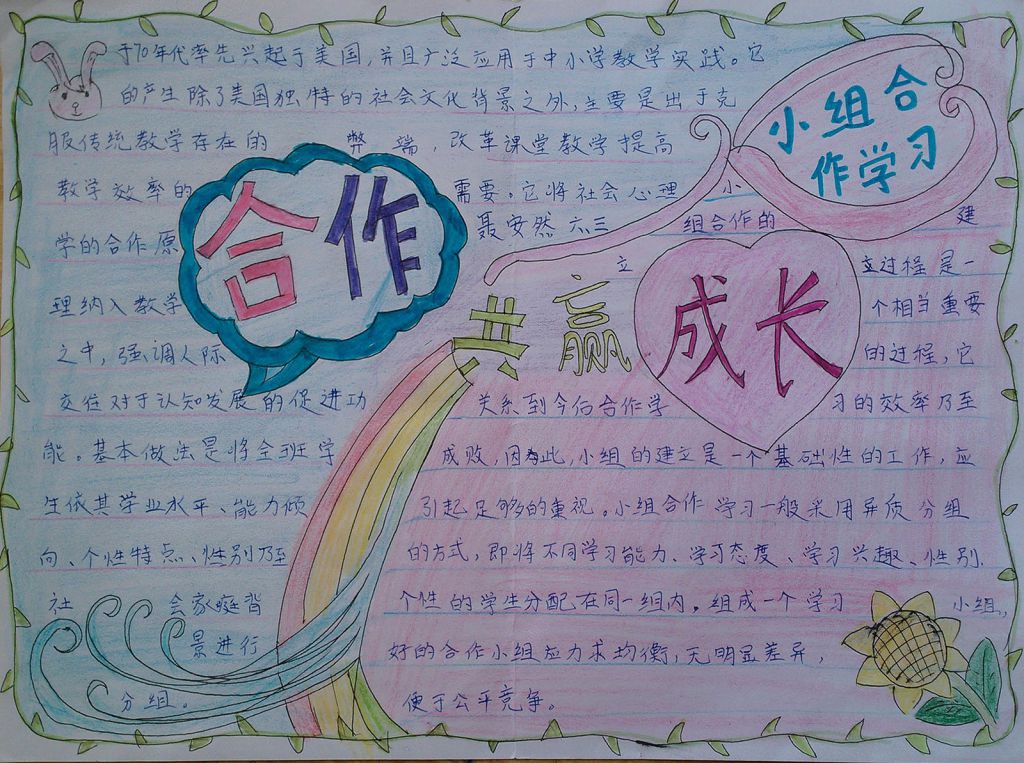 小组合
作学习
合作
共赢
成长
于70年代率先兴起于美国,并且广泛应用于中小学教学实践。它
的产生除了美国独特的社会文化背景之外,主要是出于克
服传统教学存在的 弊端,改革课堂教学提高
教学效率的 需要。它将社会心理
学的合作原
理纳入教学
之中,强调人际
交往对于认知发展的促进功
能。基本做法是将全班学
生依其学业水平、能力倾
向、个性特点、性别乃至
社 会家庭背
景进行
分组。
聂安然 六三
小
组合作的 建
立 立过程是一
个相当重要
的过程,它
关系到今后合作学 习的效率乃至
成败,因为此,小组的建立是一个基础性的工作,应
引起足够的重视。小组合作 学习一般采用异质分组
的方式,即将不同学习能力、学习态度、学习兴趣、性别、
个性的学生分配在同一组内。组成一个学习 小组,,
好的合作小组应力求均衡,无明显差异,
便于公平竞争。